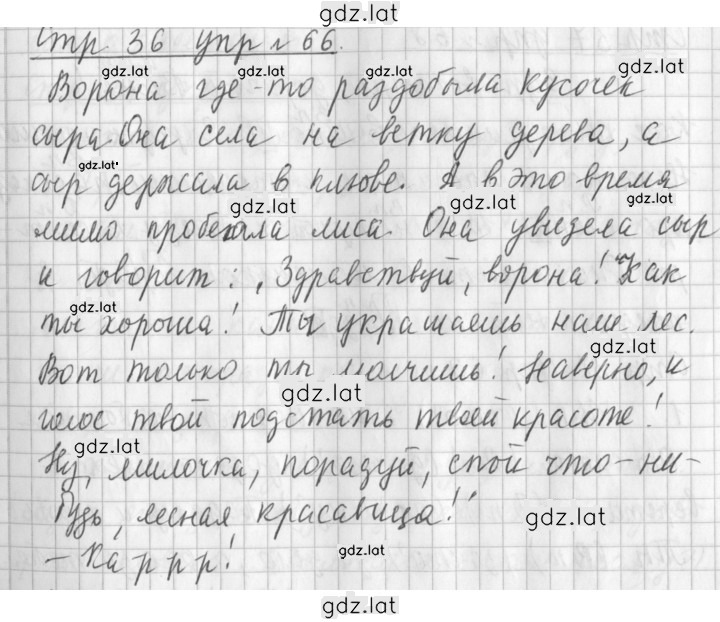 gdz.lat
Стр 36 упр № 66.
gdz.lat gdz.lat gdz.lat gdz.lat
Ворона где-то раздобыла кусочек
сыра. Она села на ветку дерева, а
gdz.lat gdz.lat gdz.lat
сыр держала в клюве. А в это время
gdz.lat gdz.lat gdz.lat
мимо пробегала лиса. Она увидела сыр
и говорит: „Здравствуй, ворона! Как
gdz.lat
ты хороша! Ты украшаешь наш лес.
gdz.lat
Вот только ты молчишь! Наверно, и
gdz.lat
голос твой подстать твоей красоте!
gdz.lat
Ну, милочка, порадуй, спой что-ни-
будь, лесная красавица!"
gdz.lat gdz.lat
- Ка р р р!
gdz.lat
gdz.lat